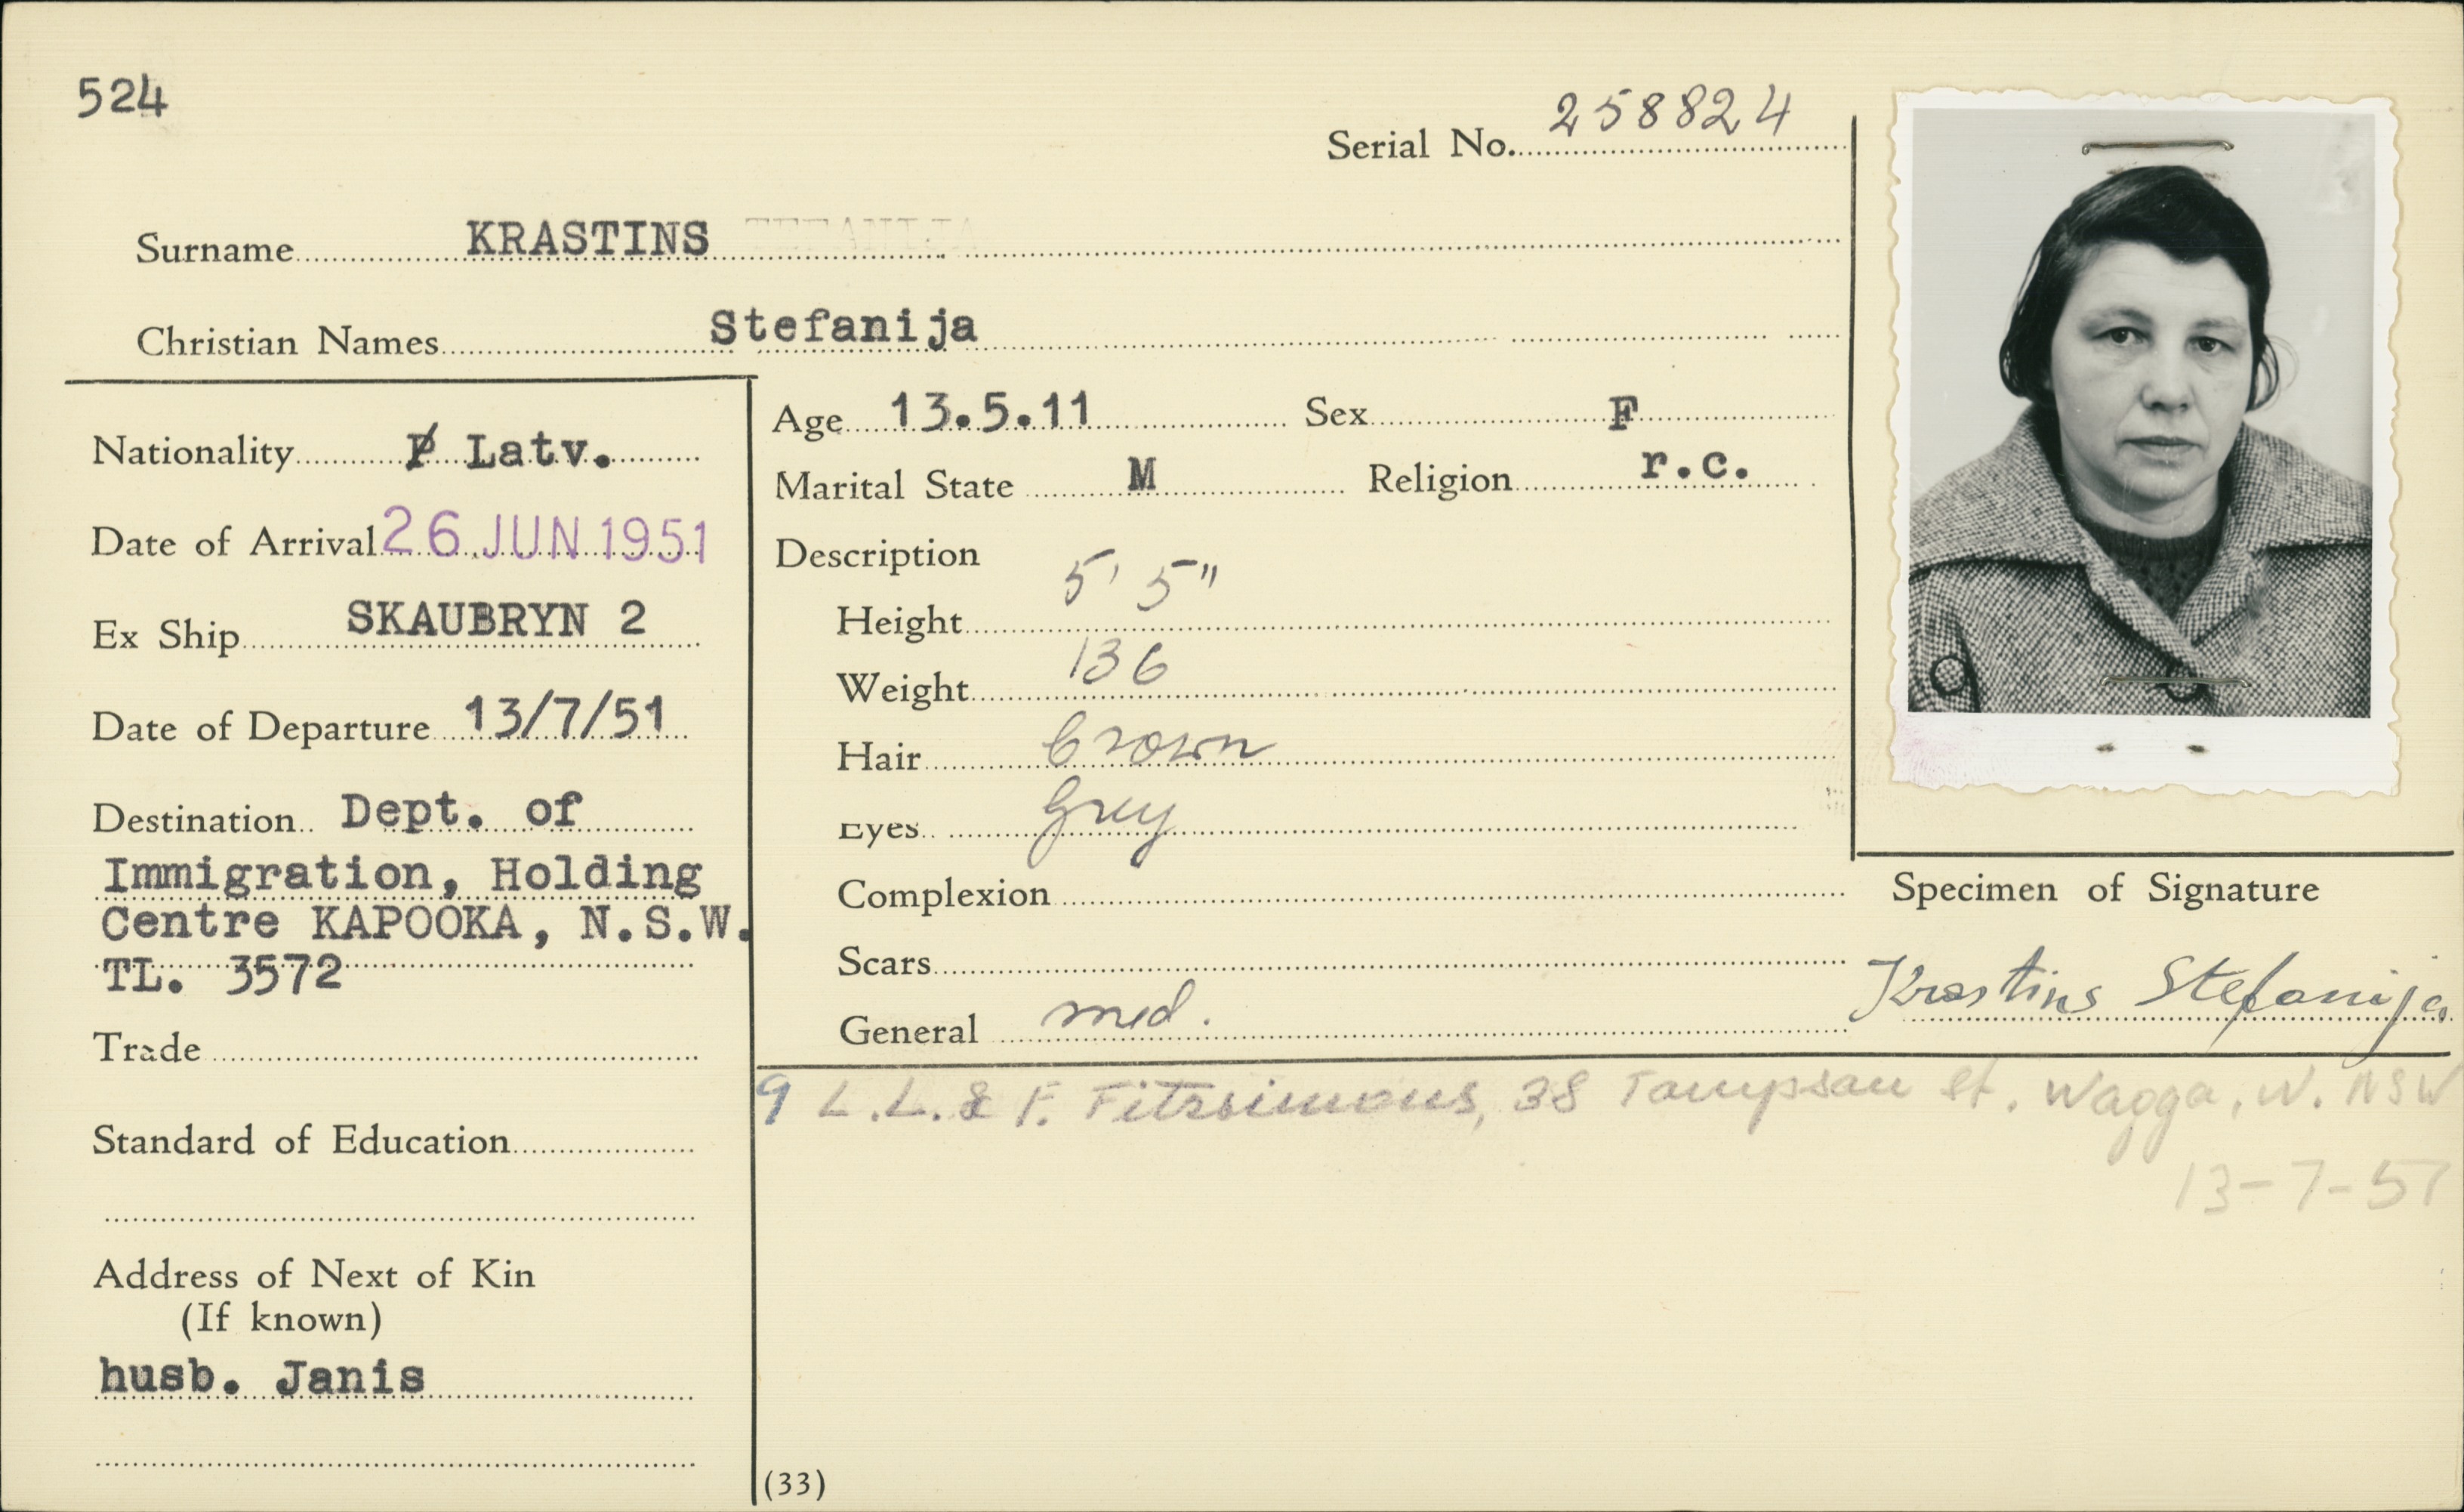 524
Serial No. 258824
Surname KRASTINS
Christian Names Stefanija
Nationality P Latv.
Date of Arrival 26 JUN 1951
Ex Ship SKAUBRYN 2
Date of Departure 13/7/51
Destination Dept. of
Immigration, Holding
Centre KAPOOKA, N.S.W.
TL. 3572
Trade
Standard of Education
Address of Next of Kin
(If known)
husb. Janis
Age 13.5.11 Sex F
Marital State M Religion r.c.
Description
Height 5' 5"
Weight 136
Hair brown
Eyes grey
Complexion
Scars
General med.
Specimen of Signature
Krastins Stefanija
9 L.L. & F. Fitzsimons, 38 Tompson st. Wagga, W. NSW
13-7-51
(33)